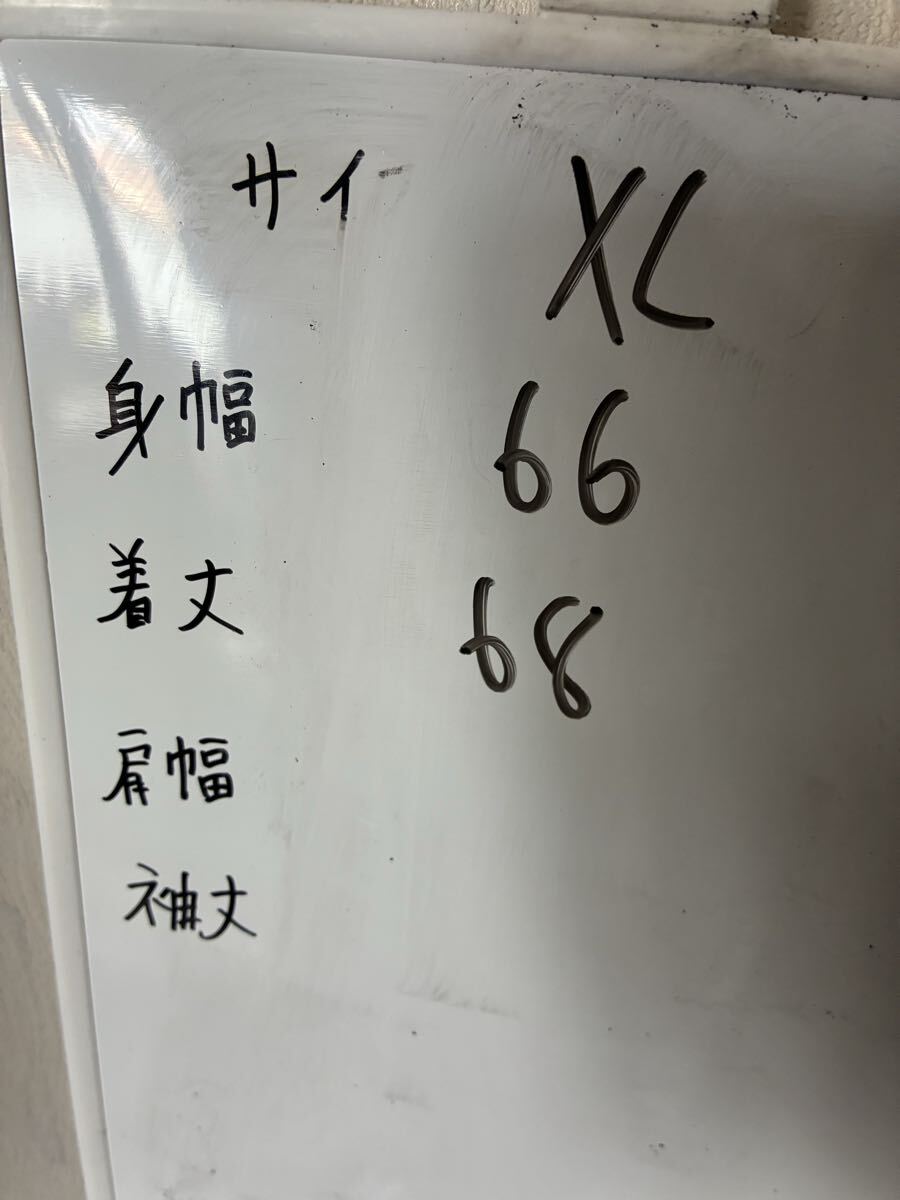 サイ XL
身幅 66
着丈 68
肩幅
袖丈